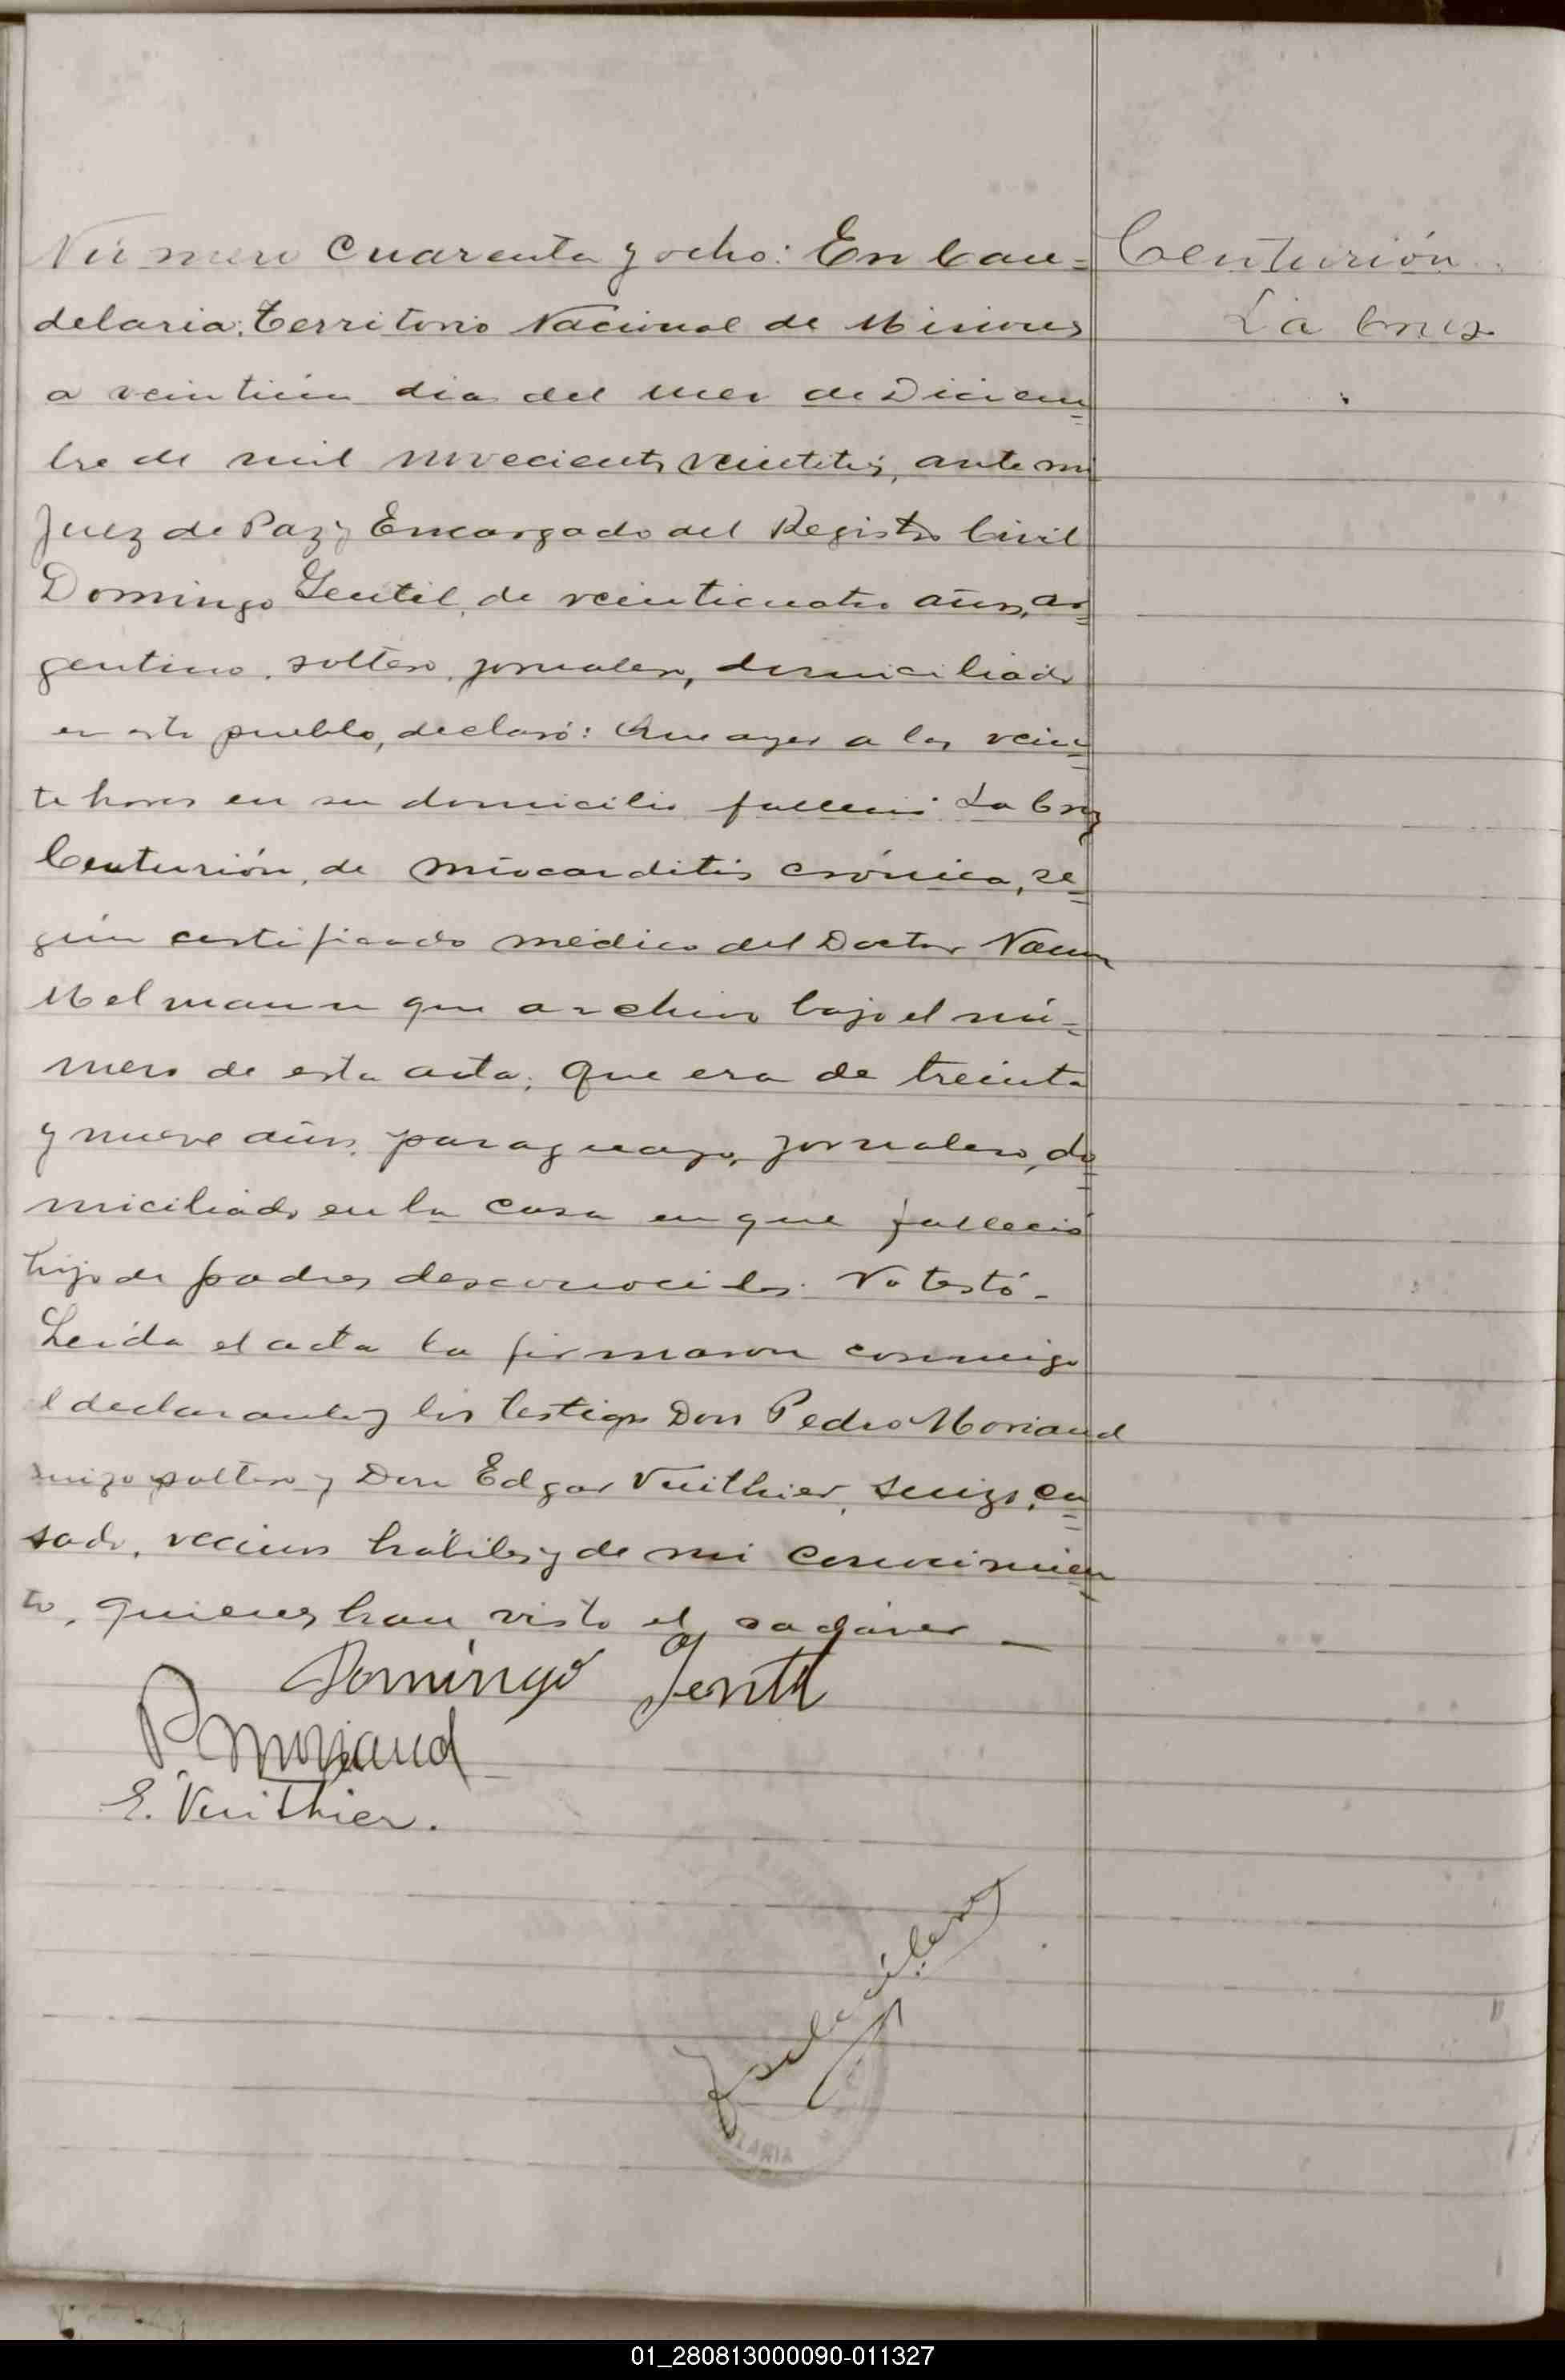 Número cuarenta y ocho: En Can=
delaria, Territorio Nacional de Misiones
a veintiún dias del mes de Diciem=
bre de mil novecientos veintitrés, ante mi
Juez de Paz y Encargado del Registro Civil
Domingo Gentil, de veinticuatro años, ar=
gentino, soltero, jornalero, domiciliado
en este pueblo, declaró: Que ayer a las vein=
te horas en su domicilio falleció La Cruz
Centurión, de miocarditis crónica, se=
gún certificado médico del Doctor Naum
Melmann que archivo bajo el nú=
mero de esta acta; que era de treinta
y nueve años, paraguayo, jornalero, do=
miciliado en la casa en que falleció
hijo de padres desconocidos. No testó -
Leída el acta la firmaron conmigo
el declarante y los testigos Don Pedro Moriaud
suizo soltero y Don Edgar Vuithier, suizo, ca=
sado, vecinos hábiles y de mi conocimien=
to, quienes han visto el cadáver —
Domingo Gentil
P Moriaud
E. Vuithier.
Centurión
La Cruz
LARIA
01_280813000090-011327